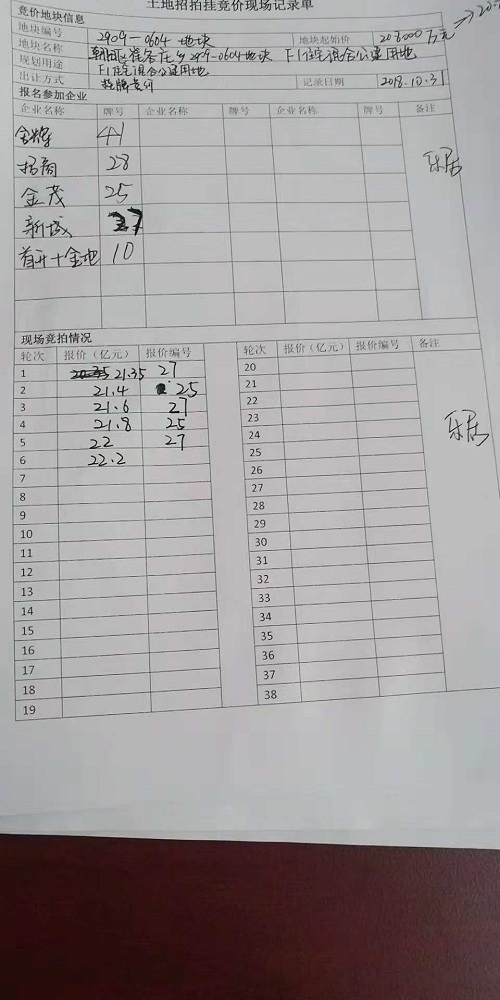 土地招拍挂竞价现场记录单
竞价地块信息
地块编号 2909-0604 地块 地块起始价 208000万元
地块名称 朝阳区崔各庄乡2909-0604地块 F1住宅混合公建用地
规划用途 F1住宅混合公建用地
出让方式 挂牌竞价 记录日期 2018.10.31
报名参加企业
企业名称 牌号 企业名称 牌号 企业名称 牌号 备注
41
招商 28 乐居
金茂 25
新城 27
首开+金地 10
现场竞拍情况
轮次 报价（亿元） 报价编号 轮次 报价（亿元） 报价编号 备注
1 21.35 27 20
2 21.4 25 21
3 21.6 27 22
4 21.8 25 23 乐居
5 22 27 24
6 22.2 25
7 26
8 27
9 28
10 29
11 30
12 31
13 32
14 33
15 34
16 35
17 36
18 37
19 38